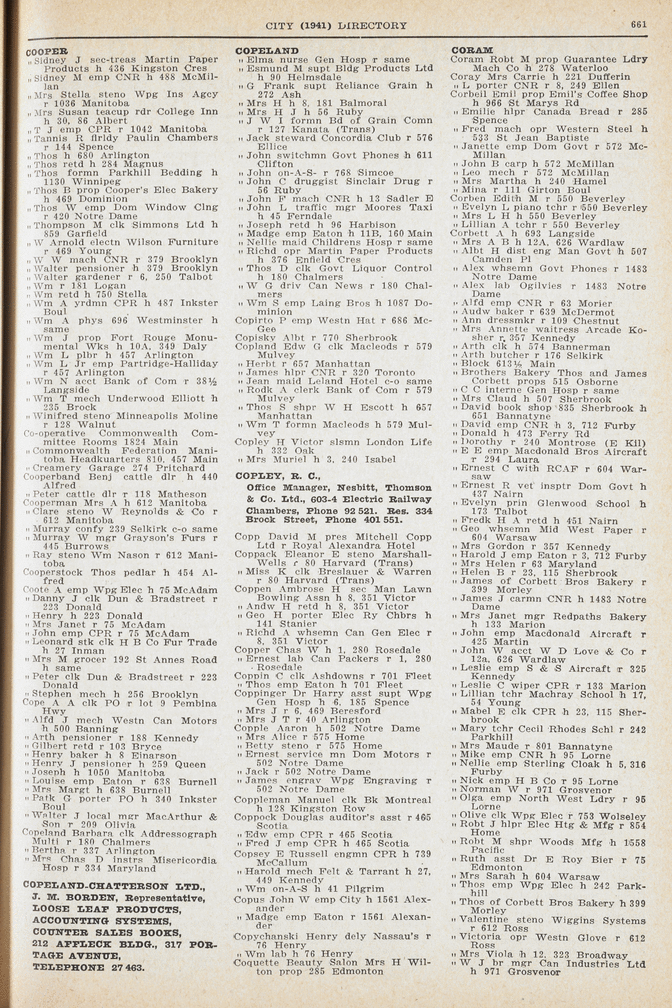 CITY (1941) DIRECTORY
661
COOPER
" Sidney J sec-treas Martin Paper
Products h 436 Kingston Cres
" Sidney M emp CNR h 488 McMil-
lan
" Mrs Stella steno Wpg Ins Agcy
r 1036 Manitoba
" Mrs Susan teacup rdr College Inn
h 30, 86 Albert
" T J emp CPR r 1042 Manitoba
" Tannis R flrldy Paulin Chambers
r 144 Spence
" Thos h 680 Arlington
" Thos retd h 284 Magnus
" Thos formn Parkhill Bedding h
1130 Winnipeg
" Thos B prop Cooper's Elec Bakery
h 469 Dominion
" Thos W emp Dom Window Clng
r 420 Notre Dame
" Thompson M clk Simmons Ltd h
859 Garfield
" W Arnold electn Wilson Furniture
r 469 Young
" W W mach CNR r 379 Brooklyn
" Walter pensioner h 379 Brooklyn
" Walter gardener r 6, 250 Talbot
" Wm r 181 Logan
" Wm retd h 750 Stella
" Wm A yrdmn CPR h 487 Inkster
Boul
" Wm A phys 696 Westminster h
same
" Wm J prop Fort Rouge Monu-
mental Wks h 10A, 349 Daly
" Wm L plbr h 457 Arlington
" Wm L Jr emp Partridge-Halliday
r 457 Arlington
" Wm N acct Bank of Com r 38½
Langside
" Wm T mech Underwood Elliott h
235 Brock
" Winifred steno Minneapolis Moline
r 128 Walnut
Co-operative Commonwealth Com-
mittee Rooms 1824 Main
" Commonwealth Federation Mani-
toba Headquarters 810, 457 Main
" Creamery Garage 274 Pritchard
Cooperband Benj cattle dlr h 440
Alfred
" Peter cattle dlr r 118 Matheson
Cooperman Mrs A h 612 Manitoba
" Clare steno W Reynolds & Co r
612 Manitoba
" Murray confy 239 Selkirk c-o same
" Murray W mgr Grayson's Furs r
445 Burrows
" Ray steno Wm Nason r 612 Mani-
toba
Cooperstock Thos pedlar h 454 Al-
fred
Coote A emp Wpg Elec h 75 McAdam
" Danny J clk Dun & Bradstreet r
223 Donald
" Henry h 223 Donald
" Mrs Janet r 75 McAdam
" John emp CPR r 75 McAdam
" Leonard stk clk H B Co Fur Trade
h 27 Inman
" Mrs M grocer 192 St Annes Road
h same
" Peter clk Dun & Bradstreet r 223
Donald
" Stephen mech h 256 Brooklyn
Cope A A clk PO r lot 9 Pembina
Hwy
" Alfd J mech Westn Can Motors
h 500 Banning
" Arth pensioner r 188 Kennedy
" Gilbert retd r 103 Bryce
" Henry baker h 8 Einarson
" Henry J pensioner h 259 Queen
" Joseph h 1050 Manitoba
" Louise emp Eaton r 638 Burnell
" Mrs Margt h 638 Burnell
" Park G porter PO h 340 Inkster
Boul
" Walter J local mgr MacArthur &
Son r 209 Olivia
Copeland Barbara clk Addressograph
Multi r 180 Chalmers
" Bertha r 337 Arlington
" Mrs Chas D instrs Misericordia
Hosp r 334 Maryland
COPELAND-CHATTERSON LTD.,
J. M. BORDEN, Representative,
LOOSE LEAF PRODUCTS,
ACCOUNTING SYSTEMS,
COUNTER SALES BOOKS,
212 AFFLECK BLDG., 317 POR-
TAGE AVENUE,
TELEPHONE 27 463.
COPELAND
" Elma nurse Gen Hosp r same
" Esmund M supt Bldg Products Ltd
h 90 Helmsdale
" G Frank supt Reliance Grain h
272 Ash
" Mrs H h 8, 181 Balmoral
" Mrs H J h 56 Ruby
" J W I formn Bd of Grain Comn
r 127 Kanata (Trans)
" Jack steward Concordia Club r 576
Ellice
" John switchmn Govt Phones h 611
Clifton
" John on-A-S- r 768 Simcoe
" John C druggist Sinclair Drug r
56 Ruby
" John F mach CNR h 13 Sadler E
" John L traffic mgr Moores Taxi
h 45 Ferndale
" Joseph retd h 96 Harbison
" Madge emp Eaton h 11B, 160 Main
" Nellie maid Childrens Hosp r same
" Richd opr Martin Paper Products
h 376 Enfield Cres
" Thos D clk Govt Liquor Control
h 180 Chalmers
" W G driv Can News r 180 Chal-
mers
" Wm S emp Laing Bros h 1087 Do-
minion
Copirto P emp Westn Hat r 686 Mc-
Gee
Copisky Albt r 770 Sherbrook
Copland Edw G clk Macleods r 579
Mulvey
" Herbt r 657 Manhattan
" James hlpr CNR r 320 Toronto
" Jean maid Leland Hotel c-o same
" Rodk A clerk Bank of Com r 579
Mulvey
" Thos S shpr W H Escott h 657
Manhattan
" Wm T formn Macleods h 579 Mul-
vey
Copley H Victor slsmn London Life
h 332 Oak
" Mrs Muriel h 3, 240 Isabel
COPLEY, R. C.,
Office Manager, Nesbitt, Thomson
& Co. Ltd., 603-4 Electric Railway
Chambers, Phone 92 521. Res. 334
Brock Street, Phone 401 551.
Copp David M pres Mitchell Copp
Ltd r Royal Alexandra Hotel
Coppack Eleanor E steno Marshall-
Wells r 80 Harvard (Trans)
" Miss K clk Breslauer & Warren
r 80 Harvard (Trans)
Coppen Ambrose H sec Man Lawn
Bowling Assn h 8, 351 Victor
" Andw H retd h 8, 351 Victor
" Geo H porter Elec Ry Chbrs h
141 Stanier
" Richd A whsemn Can Gen Elec r
8, 351 Victor
Copper Chas W h 1, 280 Rosedale
" Ernest lab Can Packers r 1, 280
Rosedale
Coppin C clk Ashdowns r 701 Fleet
" Thos emp Eaton h 701 Fleet
Coppinger Dr Harry asst supt Wpg
Gen Hosp h 6, 185 Spence
" Mrs J r 6, 469 Beresford
" Mrs J T r 40 Arlington
Copple Aaron h 502 Notre Dame
" Mrs Alice r 575 Home
" Betty steno r 575 Home
" Ernest service mn Dom Motors r
502 Notre Dame
" Jack r 502 Notre Dame
" James engrav Wpg Engraving r
502 Notre Dame
Coppleman Manuel clk Bk Montreal
h 128 Kingston Row
Coppock Douglas auditor's asst r 465
Scotia
" Edw emp CPR r 465 Scotia
" Fred J emp CPR h 465 Scotia
Copsey E Russell engmn CPR h 739
McCallum
" Harold mech Felt & Tarrant h 27,
449 Kennedy
" Wm on-A-S h 41 Pilgrim
Copus John W emp City h 1561 Alex-
ander
" Madge emp Eaton r 1561 Alexan-
der
Copychanski Henry dely Nassau's r
76 Henry
" Wm lab h 76 Henry
Coquette Beauty Salon Mrs H Wil-
ton prop 285 Edmonton
CORAM
Coram Robt M prop Guarantee Ldry
Mach Co h 278 Waterloo
Coray Mrs Carrie h 221 Dufferin
" L porter CNR r 8, 249 Ellen
Corbeil Emil prop Emil's Coffee Shop
h 966 St Marys Rd
" Emilie hlpr Canada Bread r 285
Spence
" Fred mach opr Western Steel h
533 St Jean Baptiste
" Janette emp Dom Govt r 572 Mc-
Millan
" John B carp h 572 McMillan
" Leo mech r 572 McMillan
" Mrs Martha h 240 Hamel
" Mina r 111 Girton Boul
Corben Edith M r 550 Beverley
" Evelyn L piano tchr r 550 Beverley
" Mrs L H h 550 Beverley
" Lillian A tchr r 550 Beverley
Corbett A h 693 Langside
" Mrs A B h 12A, 626 Wardlaw
" Albt H dist eng Man Govt h 507
Camden Pl
" Alex whsemn Govt Phones r 1483
Notre Dame
" Alex lab Ogilvies r 1483 Notre
Dame
" Alfd emp CNR r 63 Morier
" Audw baker r 639 McDermot
" Ann dressmkr r 109 Chestnut
" Mrs Annette waitress Arcade Ko-
sher r 357 Kennedy
" Arth clk h 574 Bannerman
" Arth butcher r 176 Selkirk
" Block 613½ Main
" Brothers Bakery Thos and James
Corbett props 515 Osborne
" C C interne Gen Hosp r same
" Mrs Claud h 507 Sherbrook
" David book shop 835 Sherbrook h
651 Bannatyne
" David emp CNR h 3, 712 Furby
" Donald h 473 Ferry Rd
" Dorothy r 240 Montrose (E Kil)
" E E emp Macdonald Bros Aircraft
r 294 Laura
" Ernest C with RCAF r 604 War-
saw
" Ernest R vet insptr Dom Govt h
437 Nairn
" Evelyn prin Glenwood School h
173 Talbot
" Fredk H A retd h 451 Nairn
" Geo whsemn Mid West Paper r
604 Warsaw
" Mrs Gordon r 357 Kennedy
" Harold J emp Eaton r 3, 712 Furby
" Mrs Helen r 63 Maryland
" Helen B r 23, 115 Sherbrook
" James of Corbett Bros Bakery r
399 Morley
" James J carmn CNR h 1483 Notre
Dame
" Mrs Janet mgr Redpaths Bakery
h 133 Marion
" John emp Macdonald Aircraft r
425 Martin
" John W acct W D Love & Co r
12a, 626 Wardlaw
" Leslie emp S & S Aircraft r 325
Kennedy
" Leslie C wiper CPR r 133 Marion
" Lillian tchr Machray School h 17,
54 Young
" Mabel E clk CPR h 23, 115 Sher-
brook
" Mary tchr Cecil Rhodes Schl r 242
Parkhill
" Mrs Maude r 801 Bannatyne
" Mike emp CNR h 95 Lorne
" Nellie emp Sterling Cloak h 5, 316
Furby
" Nick emp H B Co r 95 Lorne
" Norman W r 971 Grosvenor
" Olga emp North West Ldry r 95
Lorne
" Olive clk Wpg Elec r 753 Wolseley
" Robt J hlpr Elec Htg & Mfg r 854
Home
" Robt M shpr Woods Mfg h 1558
Pacific
" Ruth asst Dr E Roy Bier r 75
Edmonton
" Mrs Sarah h 604 Warsaw
" Thos emp Wpg Elec h 242 Park-
hill
" Thos of Corbett Bros Bakery h 399
Morley
" Valentine steno Wiggins Systems
r 612 Ross
" Victoria opr Westn Glove r 612
Ross
" Mrs Viola h 12, 323 Broadway
" W J br mgr Can Industries Ltd
h 971 Grosvenor